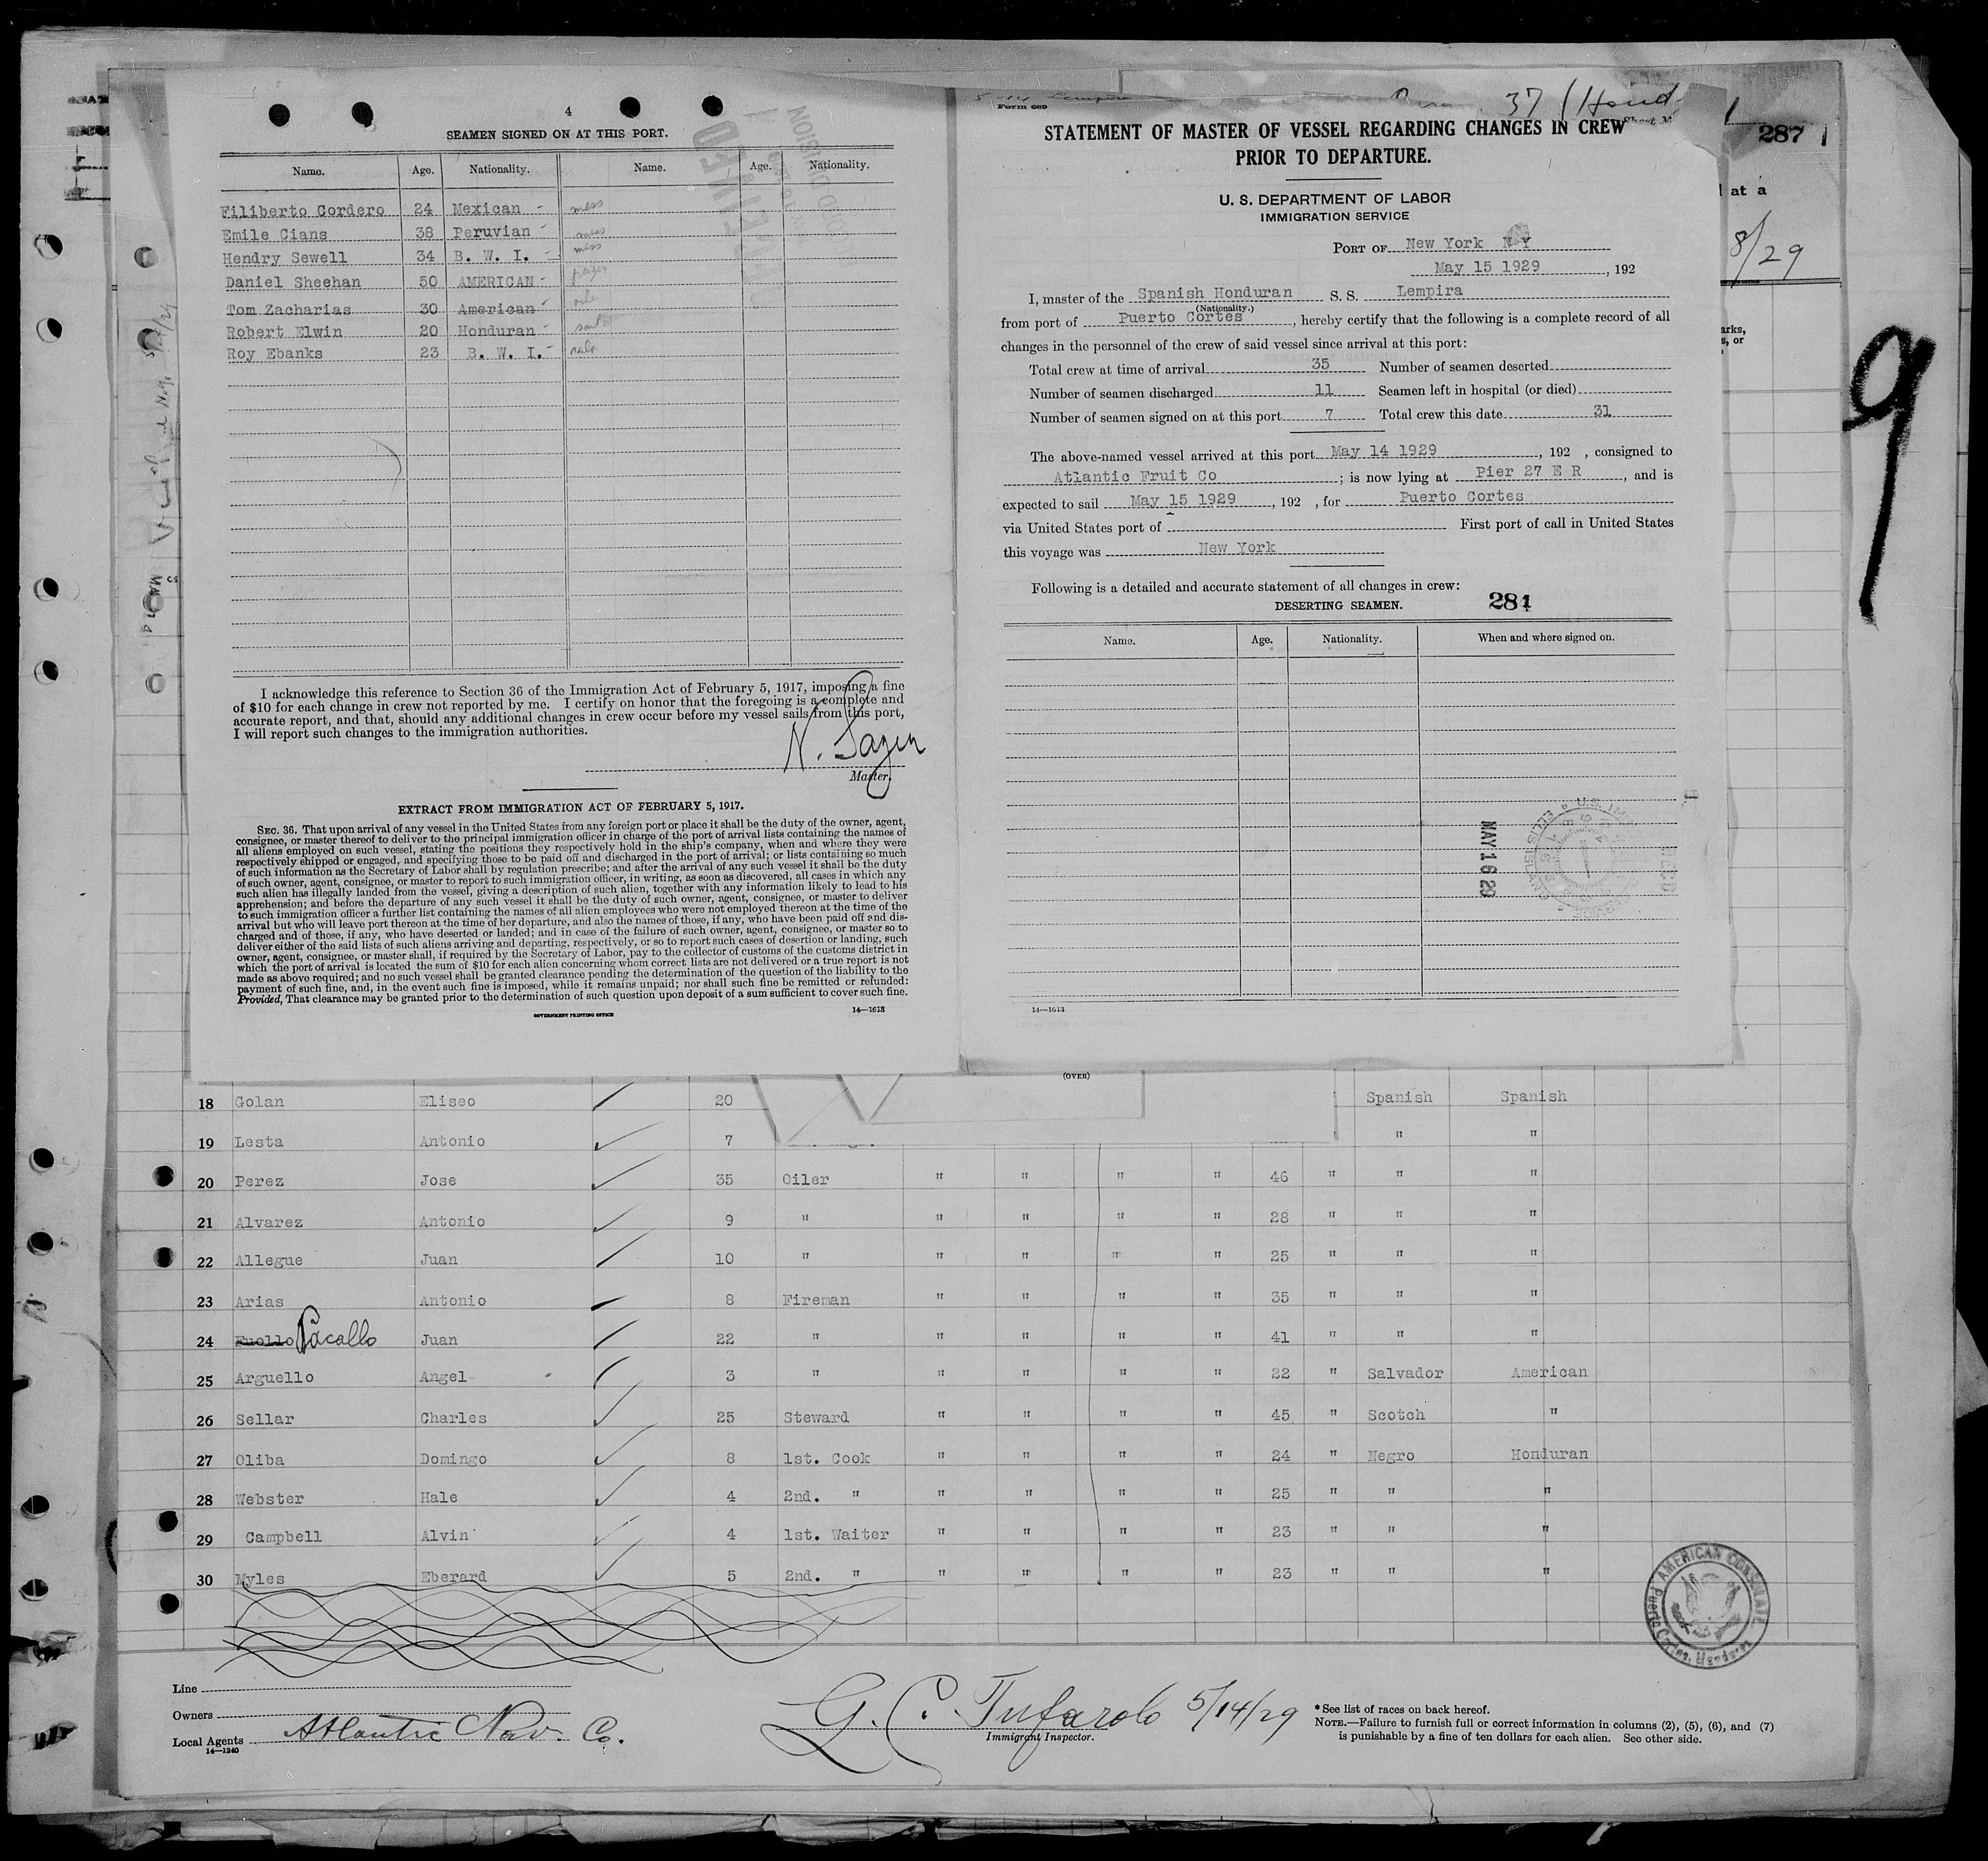 4
SEAMEN SIGNED ON AT THIS PORT.
Name. Age. Nationality. Name. Age. Nationality.
Filiberto Cordero 24 Mexican - mess
Emile Cians 38 Peruvian - mess
Hendry Sewell 34 B. W. I. - mess
Daniel Sheehan 50 AMERICAN -
Tom Zacharias 30 American - oiler
Robert Elwin 20 Honduran -
Roy Ebanks 23 B. W. I. -
I acknowledge this reference to Section 36 of the Immigration Act of February 5, 1917, imposing a fine
of $10 for each change in crew not reported by me. I certify on honor that the foregoing is a complete and
accurate report, and that, should any additional changes in crew occur before my vessel sails from this port,
I will report such changes to the immigration authorities.
Master.
EXTRACT FROM IMMIGRATION ACT OF FEBRUARY 5, 1917.
SEC. 36. That upon arrival of any vessel in the United States from any foreign port or place it shall be the duty of the owner, agent,
consignee, or master thereof to deliver to the principal immigration officer in charge of the port of arrival lists containing the names of
all aliens employed on such vessel, stating the positions they respectively hold in the ship's company, when and where they were
respectively shipped or engaged, and specifying those to be paid off and discharged in the port of arrival; or lists containing so much
of such information as the Secretary of Labor shall by regulation prescribe; and after the arrival of any such vessel it shall be the duty
of such owner, agent, consignee, or master to report to such immigration officer, in writing, as soon as discovered, all cases in which any
such alien has illegally landed from the vessel, giving a description of such alien, together with any information likely to lead to his
apprehension; and before the departure of any such vessel it shall be the duty of such owner, agent, consignee, or master to deliver
to such immigration officer a further list containing the names of all alien employees who were not employed thereon at the time of the
arrival but who will leave port thereon at the time of her departure, and also the names of those, if any, who have been paid off and dis-
charged and of those, if any, who have deserted or landed; and in case of the failure of such owner, agent, consignee, or master so to
deliver either of the said lists of such aliens arriving and departing, respectively, or so to report such cases of desertion or landing, such
owner, agent, consignee, or master shall, if required by the Secretary of Labor, pay to the collector of customs of the customs district in
which the port of arrival is located the sum of $10 for each alien concerning whom correct lists are not delivered or a true report is not
made as above required; and no such vessel shall be granted clearance pending the determination of the question of the liability to the
payment of such fine, and, in the event such fine is imposed, while it remains unpaid; nor shall such fine be remitted or refunded:
Provided, That clearance may be granted prior to the determination of such question upon deposit of a sum sufficient to cover such fine.
GOVERNMENT PRINTING OFFICE 14—1613
Form 689
37 (Hond.
287
STATEMENT OF MASTER OF VESSEL REGARDING CHANGES IN CREW
PRIOR TO DEPARTURE.
U. S. DEPARTMENT OF LABOR
IMMIGRATION SERVICE
at a
8/29
PORT OF New York N Y
May 15 1929, 192
I, master of the Spanish Honduran S. S. Lempira
(Nationality.)
from port of Puerto Cortes, hereby certify that the following is a complete record of all
changes in the personnel of the crew of said vessel since arrival at this port:
Total crew at time of arrival 35 Number of seamen deserted
Number of seamen discharged 11 Seamen left in hospital (or died)
Number of seamen signed on at this port 7 Total crew this date 31
The above-named vessel arrived at this port May 14 1929, 192 , consigned to
Atlantic Fruit Co; is now lying at Pier 27 E R, and is
expected to sail May 15 1929, 192 , for Puerto Cortes
via United States port of First port of call in United States
this voyage was New York
Following is a detailed and accurate statement of all changes in crew:
DESERTING SEAMEN. 281
Name. Age. Nationality. When and where signed on.
MAY 16 29
14—1613
9
(OVER)
18 Golan Eliseo 20 Spanish Spanish
19 Lesta Antonio 7 " "
20 Perez Jose 35 Oiler " " " " 46 " " "
21 Alvarez Antonio 9 " " " " " 28 " " "
22 Allegue Juan 10 " " " " " 25 " " "
23 Arias Antonio 8 Fireman " " " " 35 " " "
24 Pacallo Juan 22 " " " " " 41 " " "
25 Arguello Angel 3 " " " " " 22 " Salvador American
26 Sellar Charles 25 Steward " " " " 45 " Scotch "
27 Oliba Domingo 8 1st. Cook " " " " 24 " Negro Honduran
28 Webster Hale 4 2nd. " " " " " 25 " " "
29 Campbell Alvin 4 1st. Waiter " " " " 23 " " "
30 Myles Eberard 5 2nd. " " " " " 23 " " "
AMERICAN CONSULATE
Puerto Cortes, Honduras
Line
Owners
Local Agents Atlantic Nav. Co.
14—1240
G. C. Tufarolo 5/14/29
Immigrant Inspector.
* See list of races on back hereof.
NOTE.—Failure to furnish full or correct information in columns (2), (5), (6), and (7)
is punishable by a fine of ten dollars for each alien. See other side.